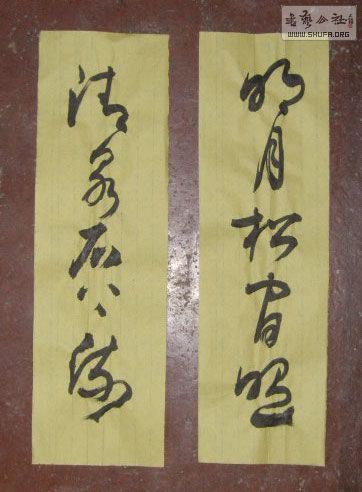 明月松间照
清泉石上流
書艺公社
WWW.SHUFA.ORG